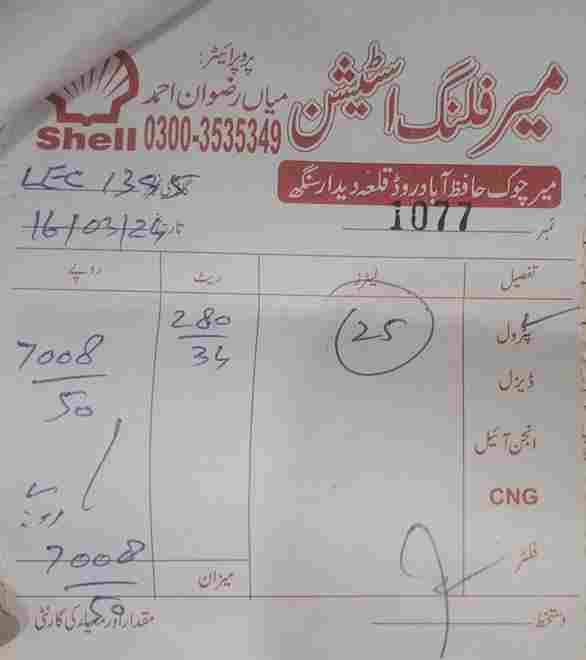 میر فلنگ اسٹیشن
پروپرائیٹر:
میاں رضوان احمد
Shell 0300-3535349
میر چوک حافظ آباد روڈ قلعہ دیدار سنگھ
نمبر 1077
LEC 1385
16/03/24
تفصیل لیٹرز ریٹ روپے
پٹرول 25 280/34 7008/50
ڈیزل
انجن آئیل
CNG
فلٹر
میزان 7008/50
دستخط
مقدار اور معیار کی گارنٹی